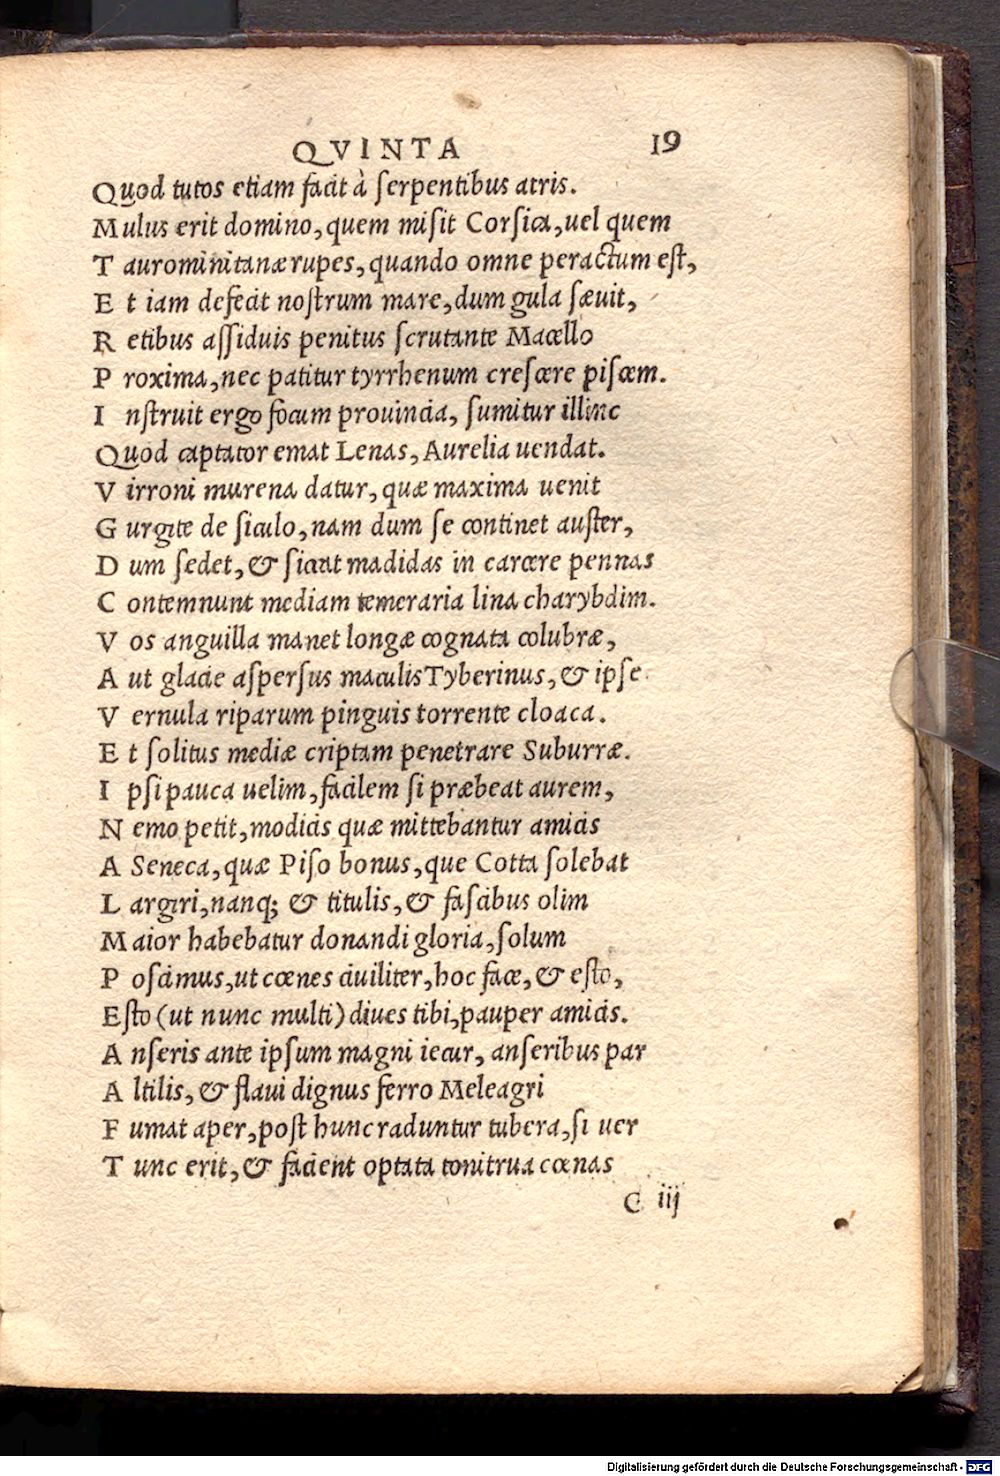 QVINTA 19
Quod tutos etiam facit à serpentibus atris.
Mulus erit domino, quem misit Corsica, uel quem
Taurominitanæ rupes, quando omne peractum est,
Et iam defecit nostrum mare, dum gula sæuit,
Retibus assiduis penitus scrutante Macello
Proxima, nec patitur tyrrhenum crescere piscem.
Instruit ergo focum prouincia, sumitur illinc
Quod captator emat Lenas, Aurelia uendat.
Virroni murena datur, quæ maxima uenit
Gurgite de siculo, nam dum se continet auster,
Dum sedet, & siccat madidas in carcere pennas
Contemnunt mediam temeraria lina charybdim.
Vos anguilla manet longæ cognata colubræ,
Aut glacie aspersus maculis Tyberinus, & ipse
Vernula riparum pinguis torrente cloaca.
Et solitus mediæ criptam penetrare Suburræ.
Ipsi pauca uelim, facilem si præbeat aurem,
Nemo petit, modicis quæ mittebantur amicis
A Seneca, quæ Piso bonus, que Cotta solebat
Largiri, nanq; & titulis, & fascibus olim
Maior habebatur donandi gloria, solum
Poscimus, ut cœnes ciuiliter, hoc face, & esto,
Esto (ut nunc multi) diues tibi, pauper amicis.
Anseris ante ipsum magni iecur, anseribus par
Altilis, & flaui dignus ferro Meleagri
Fumat aper, post hunc raduntur tubera, si uer
Tunc erit, & facient optata tonitrua cœnas
C iij
Digitalisierung gefördert durch die Deutsche Forschungsgemeinschaft - DFG